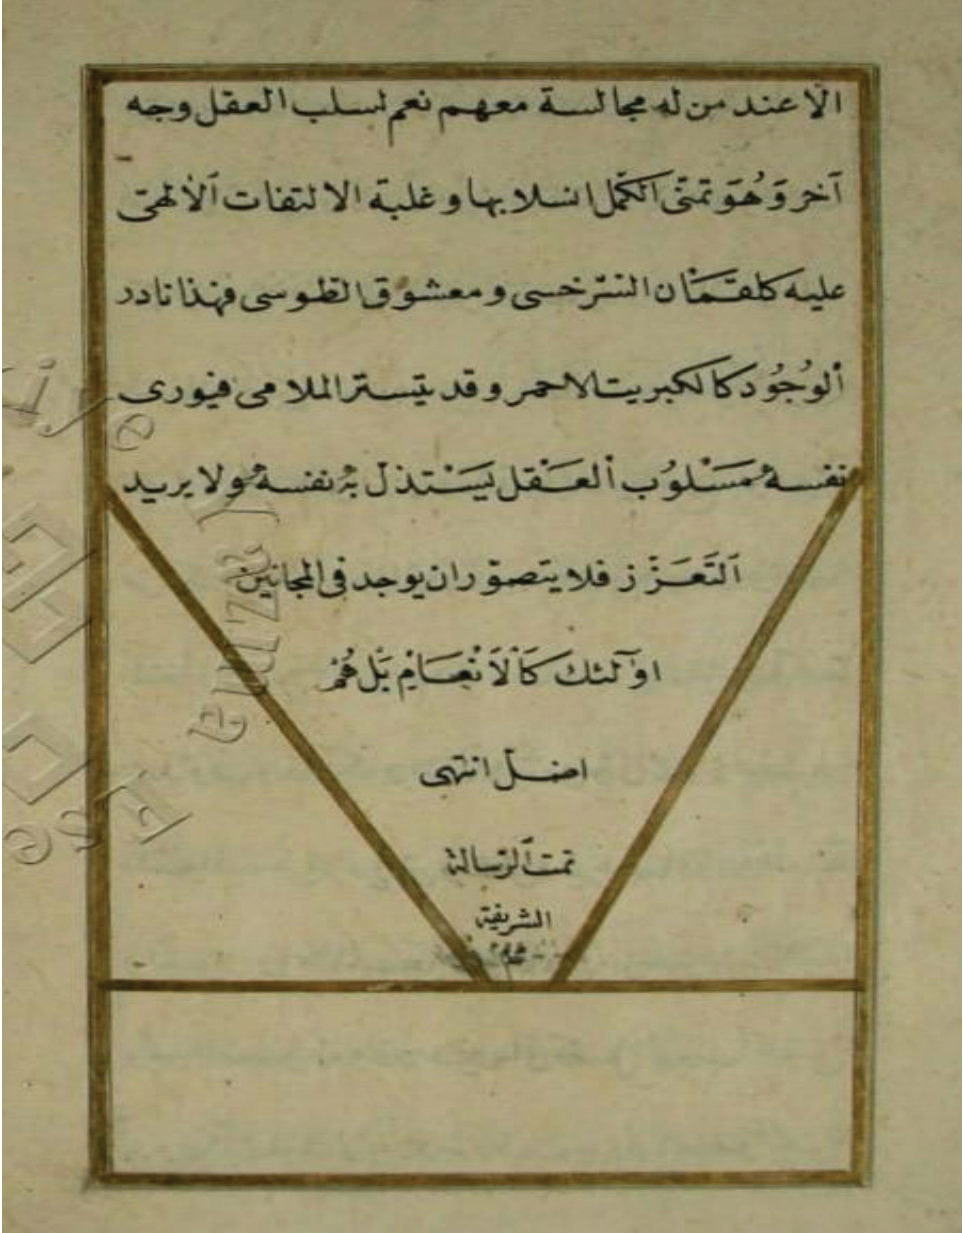 الّا عند من له مجالسة معهم نعم لسلب العقل وجه
آخر وَهُوَ تمنّى الكمّل انسلابها وغلبة الالتفات الألهىّ
عليه كلقمَان السّرخسى ومعشوق الطوسى فهذا نادر
الوُجُود كالكبريت الاحمر وقد يتستر الملامى فيورى
نفسهُ مَسْلُوب العَقل يَسْتذلّ بهُ نفسهُ ولا يريد
التَعَزّز فلا يتصوّر ان يوجد فى المجانين
اوآلئك كَالْاَنْعَامِ بَلْ هُمْ
اضل انتهى
تمت الرّسالة
الشريفة